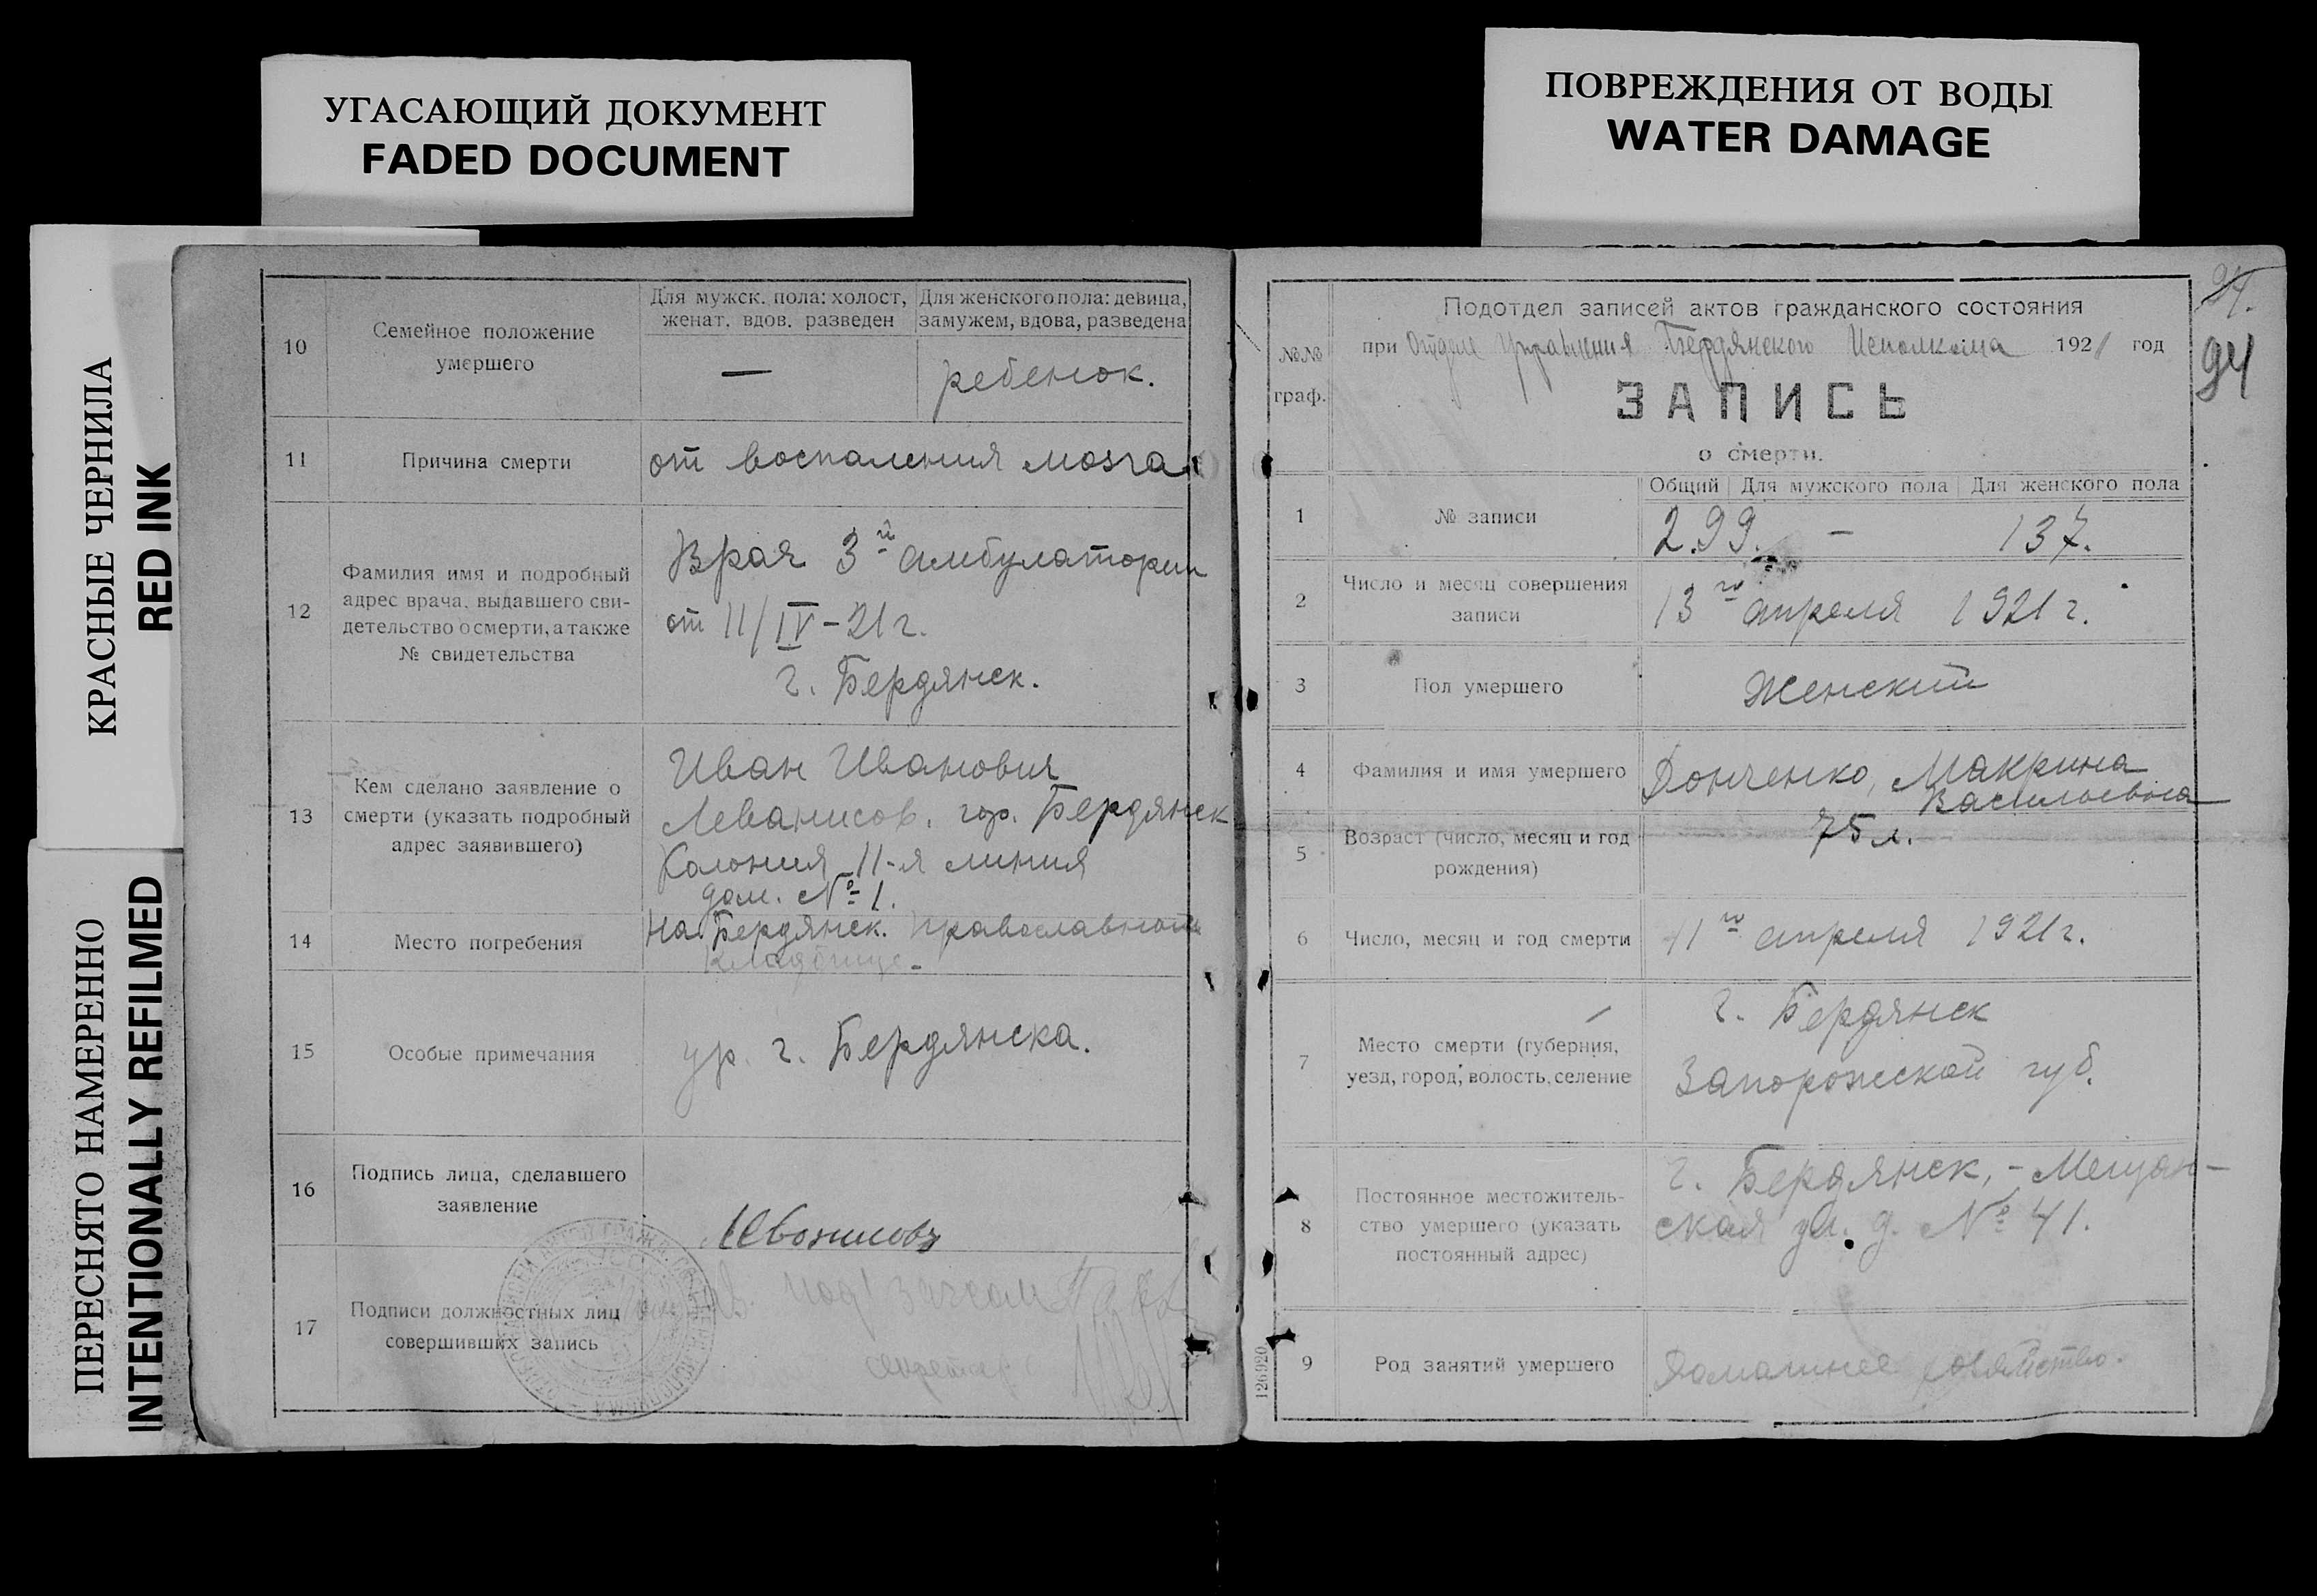 УГАСАЮЩИЙ ДОКУМЕНТ
FADED DOCUMENT
ПОВРЕЖДЕНИЯ ОТ ВОДЫ
WATER DAMAGE
КРАСНЫЕ ЧЕРНИЛА
RED INK
ПЕРЕСНЯТО НАМЕРЕННО
INTENTIONALLY REFILMED
10
Семейное положение
умершего
Для мужск. пола: холост,
женат. вдов. разведен
Для женского пола: девица,
замужем, вдова, разведена
—
ребенок.
11
Причина смерти
от воспаления мозга
12
Фамилия имя и подробный
адрес врача, выдавшего сви-
детельство о смерти, а также
№ свидетельства
Врач 3й амбулатории
от 11/IV-21г.
г. Бердянск.
13
Кем сделано заявление о
смерти (указать подробный
адрес заявившего)
Иван Иванович
Леванисов, гор. Бердянск
Колония 11-я линия
дом. № 1.
14
Место погребения
На Бердянск. православном
кладбище.
15
Особые примечания
ур. г. Бердянска.
16
Подпись лица, сделавшего
заявление
17
Подписи должностных лиц
совершивших запись
секретарь
94
№№
граф.
Подотдел записей актов гражданского состояния
при Отделе Управления Бердянского Исполкома 1921 год
ЗАПИСЬ
о смерти.
1
№ записи
Общий
Для мужского пола
Для женского пола
299.
—
137.
2
Число и месяц совершения
записи
13го апреля 1921г.
3
Пол умершего
Женский
4
Фамилия и имя умершего
Донченко, Макрина
Васильевна
5
Возраст (число, месяц и год
рождения)
75 л.
6
Число, месяц и год смерти
11го апреля 1921г.
7
Место смерти (губерния,
уезд, город, волость, селение
г. Бердянск
Запорожской губ.
8
Постоянное местожитель-
ство умершего (указать
постоянный адрес)
г. Бердянск, - Мещан-
ская ул. д. № 41.
9
Род занятий умершего
Домашнее хозяйство.
126920